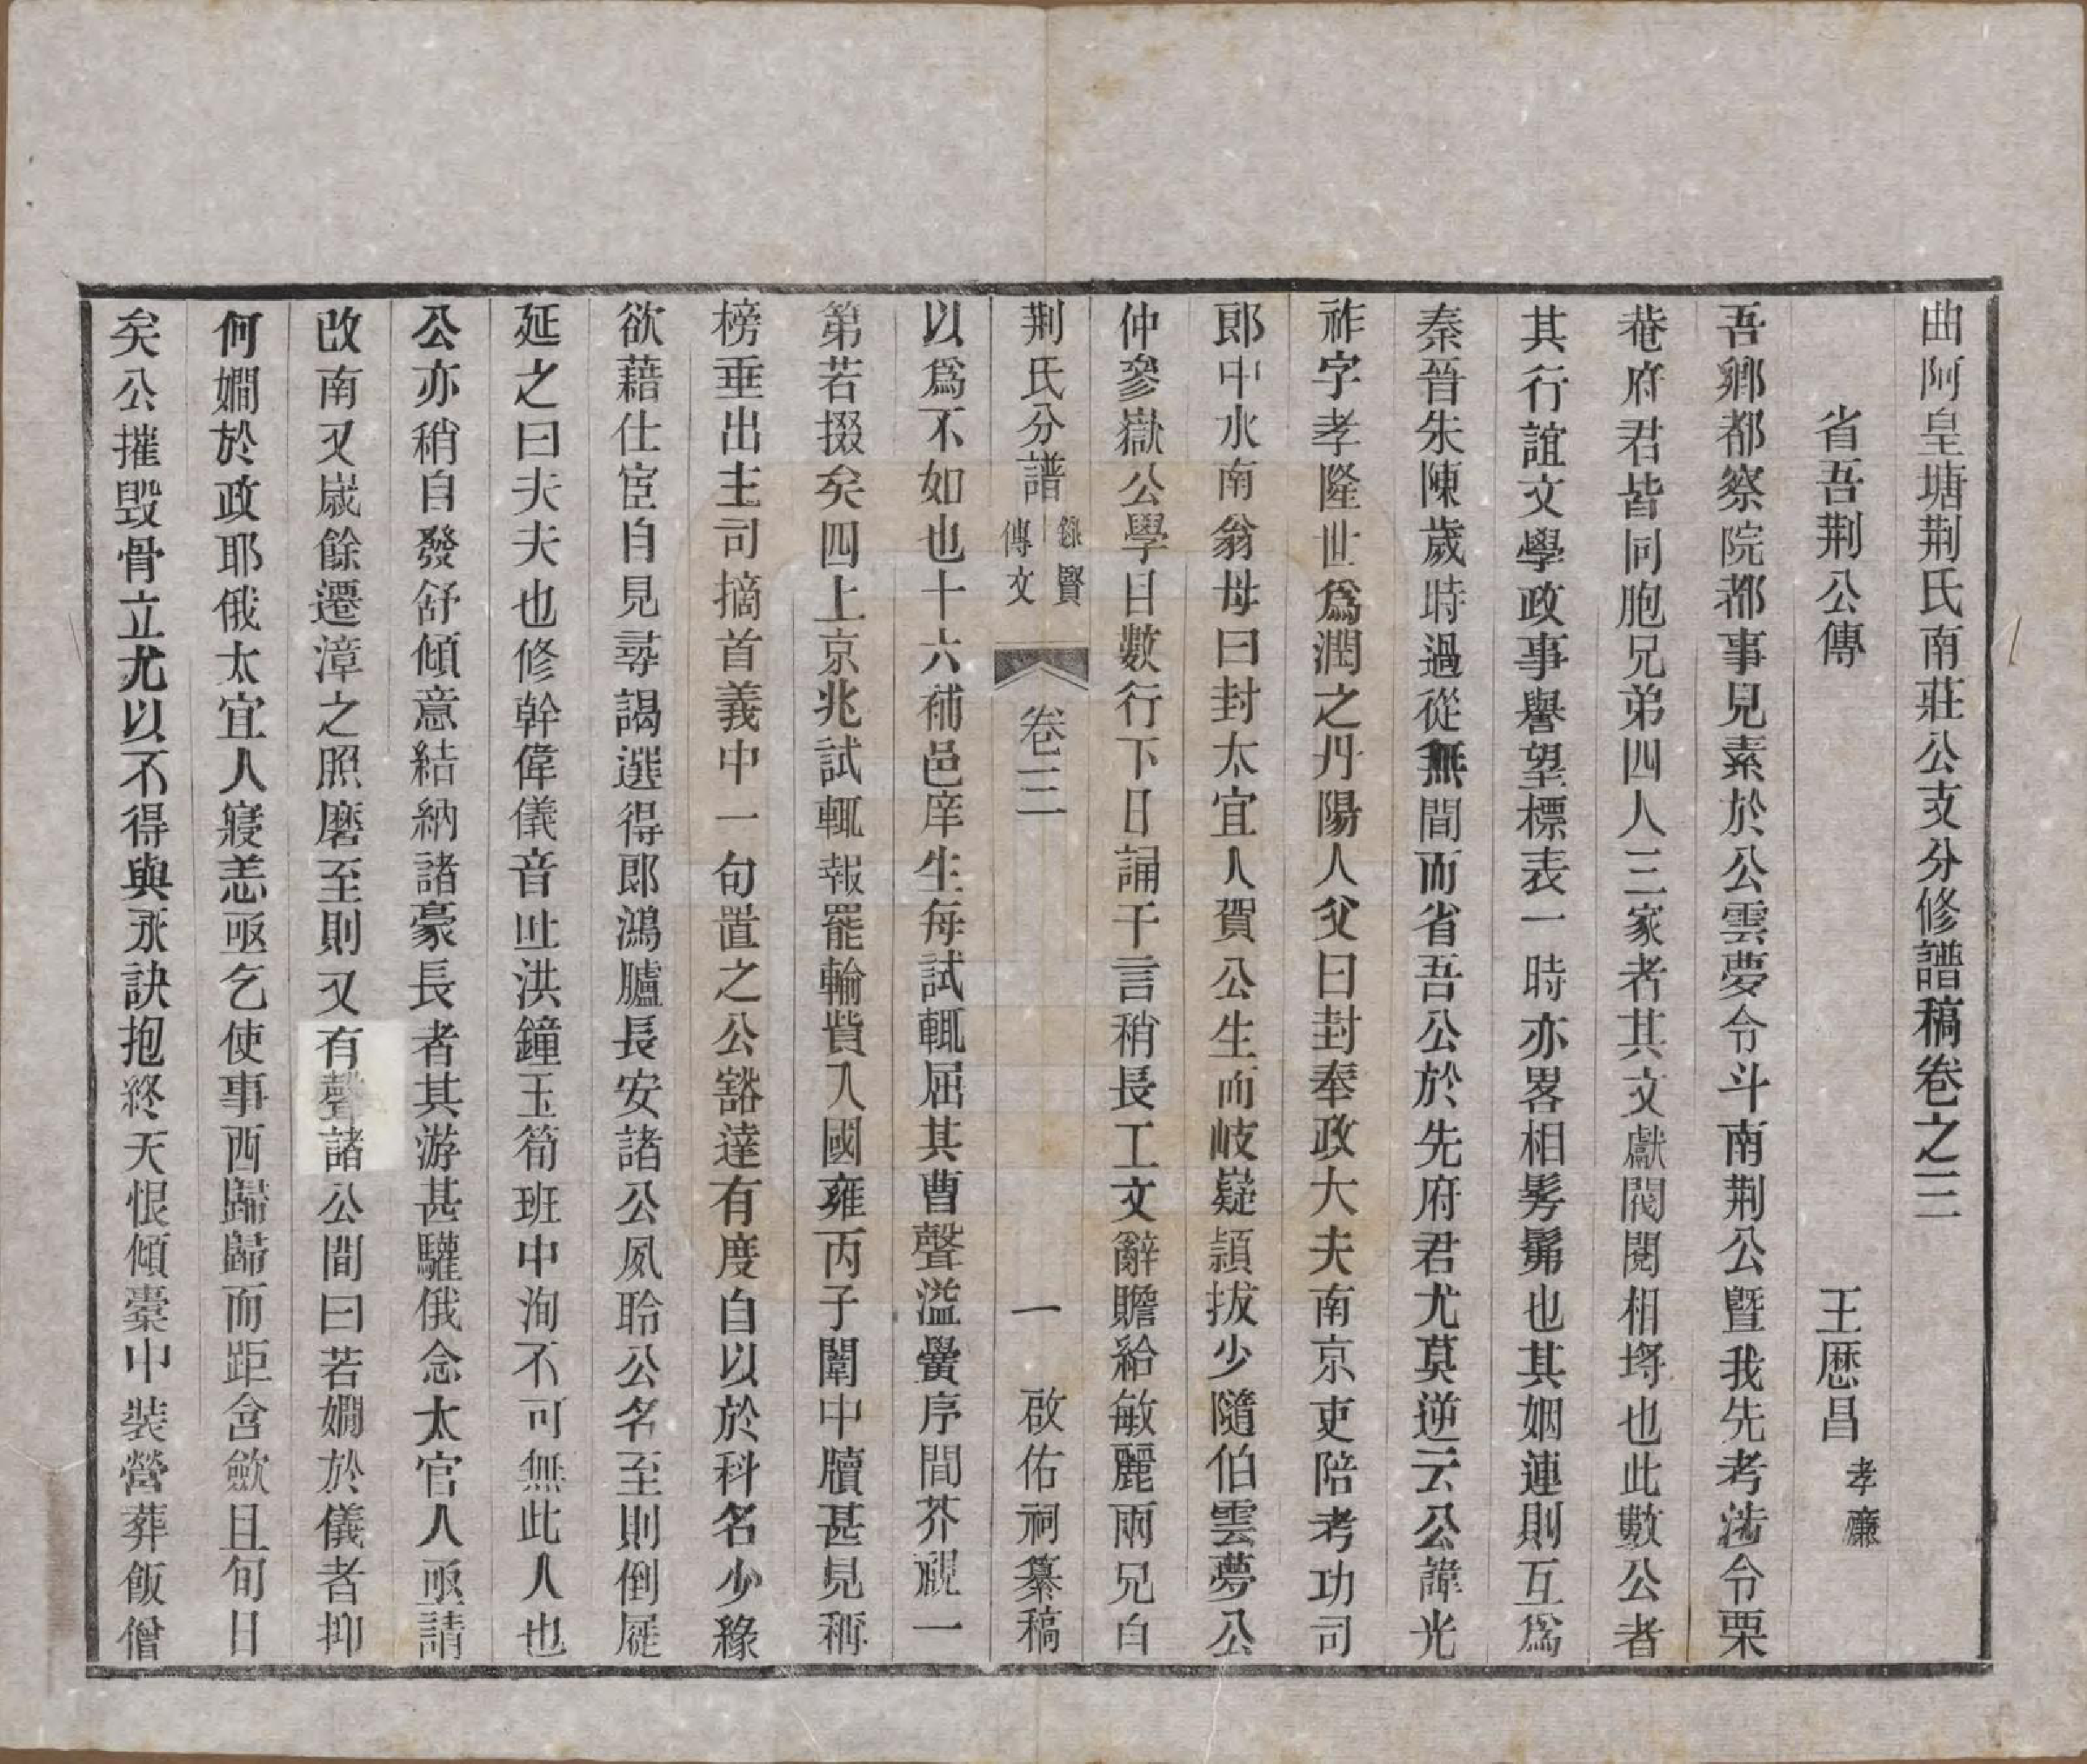 曲阿皇塘荆氏南莊公支分修譜稿卷之三
省吾荆公傳　王厯昌孝廉
吾鄉都察院都事見素於公雲夢令斗南荆公暨我先考沽令栗
菴府君皆同胞兄弟四人三家者其文獻閥閱相埒也此數公者
其行誼文學政事譽望標表一時亦畧相髣髴也其姻連則互爲
秦晉朱陳歲時過從無間而省吾公於先府君尤莫逆云公諱光
祚字孝隆世爲潤之丹陽人父曰封奉政大夫南京吏陪考功司
郎中水南翁母曰封太宜人賀公生而岐嶷頴拔少隨伯雲夢公
仲參嶽公學目數行下日誦千言稍長工文辭贍給敏麗兩兄自
荆氏分譜　錄賢傳文　卷三　一　啟佑祠纂稿
以爲不如也十六補邑庠生每試輒屈其曹聲溢黌序間芥視一
第若掇矣四上京兆試輒報罷輸貲入國雍丙子闈中牘甚見稱
榜垂出主司摘首義中一句置之公豁達有度自以於科名少緣
欲藉仕宦自見尋謁選得郎鴻臚長安諸公夙聆公名至則倒屣
延之曰夫夫也修幹偉儀音吐洪鐘玉筍班中洵不可無此人也
公亦稍自發舒傾意結納諸豪長者其游甚驩俄念太官人亟請
改南又歲餘遷漳之照磨至則又有聲諸公間曰若嫺於儀者抑
何嫺於政耶俄太宜人寢恙亟乞使事西歸歸而距含歛且旬日
矣公摧毁骨立尤以不得與永訣抱終天恨傾橐中裝營葬飯僧